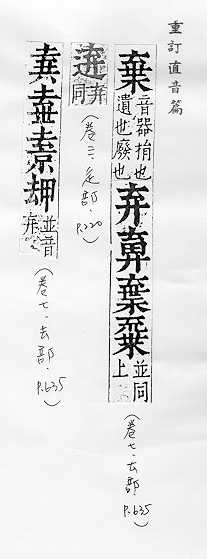 重訂直音篇
棄音器捐也遺也廢也弃棄並同上
(卷七.去部.P.635)
弃同
(卷二.辵部.P.220)
並音弃
(卷七.去部.P.635)